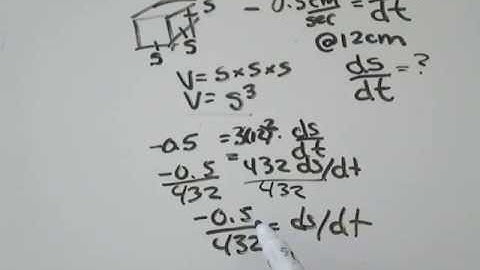 S
S
S
- 0.5 cm/sec = /dt
@12cm
ds/dt = ?
V = S × S × S
V = S³
-0.5 = 3(12)² · ds/dt
-0.5/432 = 432 ds/dt /432
-0.5/432 = ds/dt